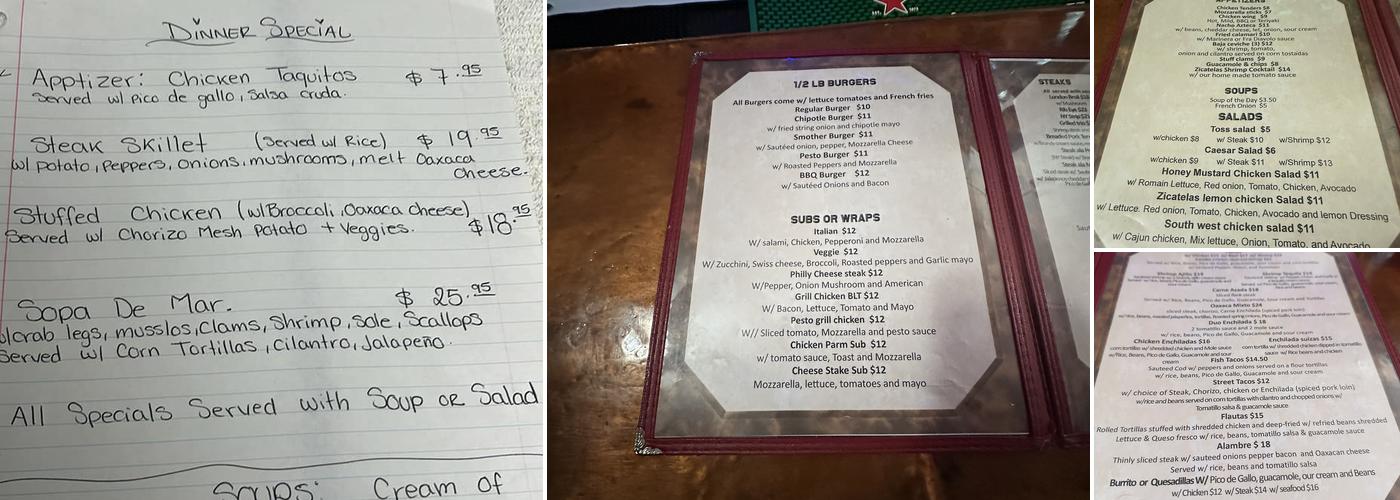 Dinner Special
Apptizer: Chicken Taquitos $ 7.95
Served w/ Pico de gallo, Salsa cruda.
Steak Skillet (Served w/ Rice) $ 19.95
w/ Potato, Peppers, onions, mushrooms, melt Oaxaca
cheese.
Stuffed Chicken (w/ Broccoli, Oaxaca cheese)
Served w/ Chorizo Mesh Potato + Veggies. $18.95
Sopa De Mar. $ 25.95
w/crab legs, musslos, Clams, Shrimp, Sole, Scallops
Served w/ Corn Tortillas, cilantro, Jalapeño.
All Specials Served with Soup or Salad
Soups: Cream of
1/2 LB BURGERS
All Burgers come w/ lettuce tomatoes and French fries
Regular Burger $10
Chipotle Burger $11
w/ fried string onion and chipotle mayo
Smother Burger $11
w/ Sautéed onion, pepper, Mozzarella Cheese
Pesto Burger $11
w/ Roasted Peppers and Mozzarella
BBQ Burger $12
w/ Sautéed Onions and Bacon
SUBS OR WRAPS
Italian $12
W/ salami, Chicken, Pepperoni and Mozzarella
Veggie $12
W/ Zucchini, Swiss cheese, Broccoli, Roasted peppers and Garlic mayo
Philly Cheese steak $12
W/Pepper, Onion Mushroom and American
Grill Chicken BLT $12
W/ Bacon, Lettuce, Tomato and Mayo
Pesto grill chicken $12
W// Sliced tomato, Mozzarella and pesto sauce
Chicken Parm Sub $12
w/ tomato sauce, Toast and Mozzarella
Cheese Stake Sub $12
Mozzarella, lettuce, tomatoes and mayo
STEAKS
APPETIZERS
Chicken Tenders $8
Mozzarella sticks $7
Chicken wing $9
Hot, Mild, BBQ or Teriyaki
Nacho Azteca $11
w/ beans, cheddar cheese, let, onion, sour cream
Fried calamari $10
w/ Marinera or Fra Diavolo sauce
Baja ceviche (3) $12
w/ shrimp, tomato,
onion and cilantro served on corn tostadas
Stuff clams $9
Guacamole & chips $8
Zicatelas Shrimp Cocktail $14
w/ our home made tomato sauce
SOUPS
Soup of the Day $3.50
French Onion $5
SALADS
Toss salad $5
w/chicken $8 w/ Steak $10 w/Shrimp $12
Caesar Salad $6
w/chicken $9 w/ Steak $11 w/Shrimp $13
Honey Mustard Chicken Salad $11
w/ Romain Lettuce, Red onion, Tomato, Chicken, Avocado
Zicatelas lemon chicken Salad $11
w/ Lettuce. Red onion, Tomato, Chicken, Avocado and lemon Dressing
South west chicken salad $11
w/ Cajun chicken, Mix lettuce, Onion, Tomato, and Avocado
Carne Asada $18
Served w/ Rice, Beans, Pico de Gallo, Guacamole, sour cream and Tortillas
Oaxaca Mixto $24
Duo Enchilada $ 18
2 tomatillo sauce and 2 mole sauce
w/ rice, beans, Pico de Gallo, Guacamole and sour cream
Chicken Enchiladas $16 Enchilada suizas $15
corn tortillas w/ shredded chicken and Mole sauce corn tortilla w/ shredded chicken dipped in tomatillo
w/Rice, Beans, Pico de Gallo, Guacamole and sour cream sauce w/ Rice beans and chicken
Fish Tacos $14.50
Sauteed Cod w/ peppers and onions served on a flour tortillas
w/ rice, beans, Pico de Gallo, Guacamole and sour cream
Street Tacos $12
w/ choice of Steak, Chorizo, chicken or Enchilada (spiced pork loin)
w/rice and beans served on corn tortillas with cilantro and chopped onions w/
Tomatillo salsa & guacamole sauce
Flautas $15
Rolled Tortillas stuffed with shredded chicken and deep-fried w/ refried beans shredded
Lettuce & Queso fresco w/ rice, beans, tomatillo salsa & guacamole sauce
Alambre $ 18
Thinly sliced steak w/ sauteed onions pepper bacon and Oaxacan cheese
Served w/ rice, beans and tomatillo salsa
Burrito or Quesadillas W/ Pico de Gallo, guacamole, our cream and Beans
w/ Chicken $12 w/ Steak $14 w/ seafood $16